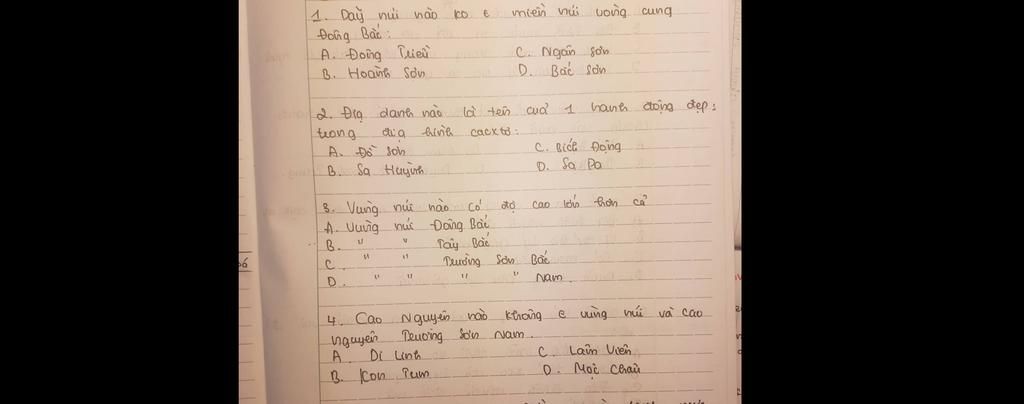 1. Dãy núi nào ko ∈ miền núi vòng cung
Đông Bắc:
A. Đông Triều C. Ngân Sơn
B. Hoành Sơn D. Bắc Sơn
2. Địa danh nào là tên của 1 hang động đẹp
trong địa hình cacxtơ:
A. Đồ Sơn C. Bích Động
B. Sa Huỳnh D. Sa Pa
3. Vùng núi nào có độ cao lớn hơn cả
A. Vùng núi Đông Bắc
B. " " Tây Bắc
C. " " Trường Sơn Bắc
D. " " " " Nam.
4. Cao Nguyên nào không ∈ vùng núi và cao
nguyên Trường Sơn Nam.
A. Di Linh C. Lâm Viên
B. Kon Tum D. Mộc Châu